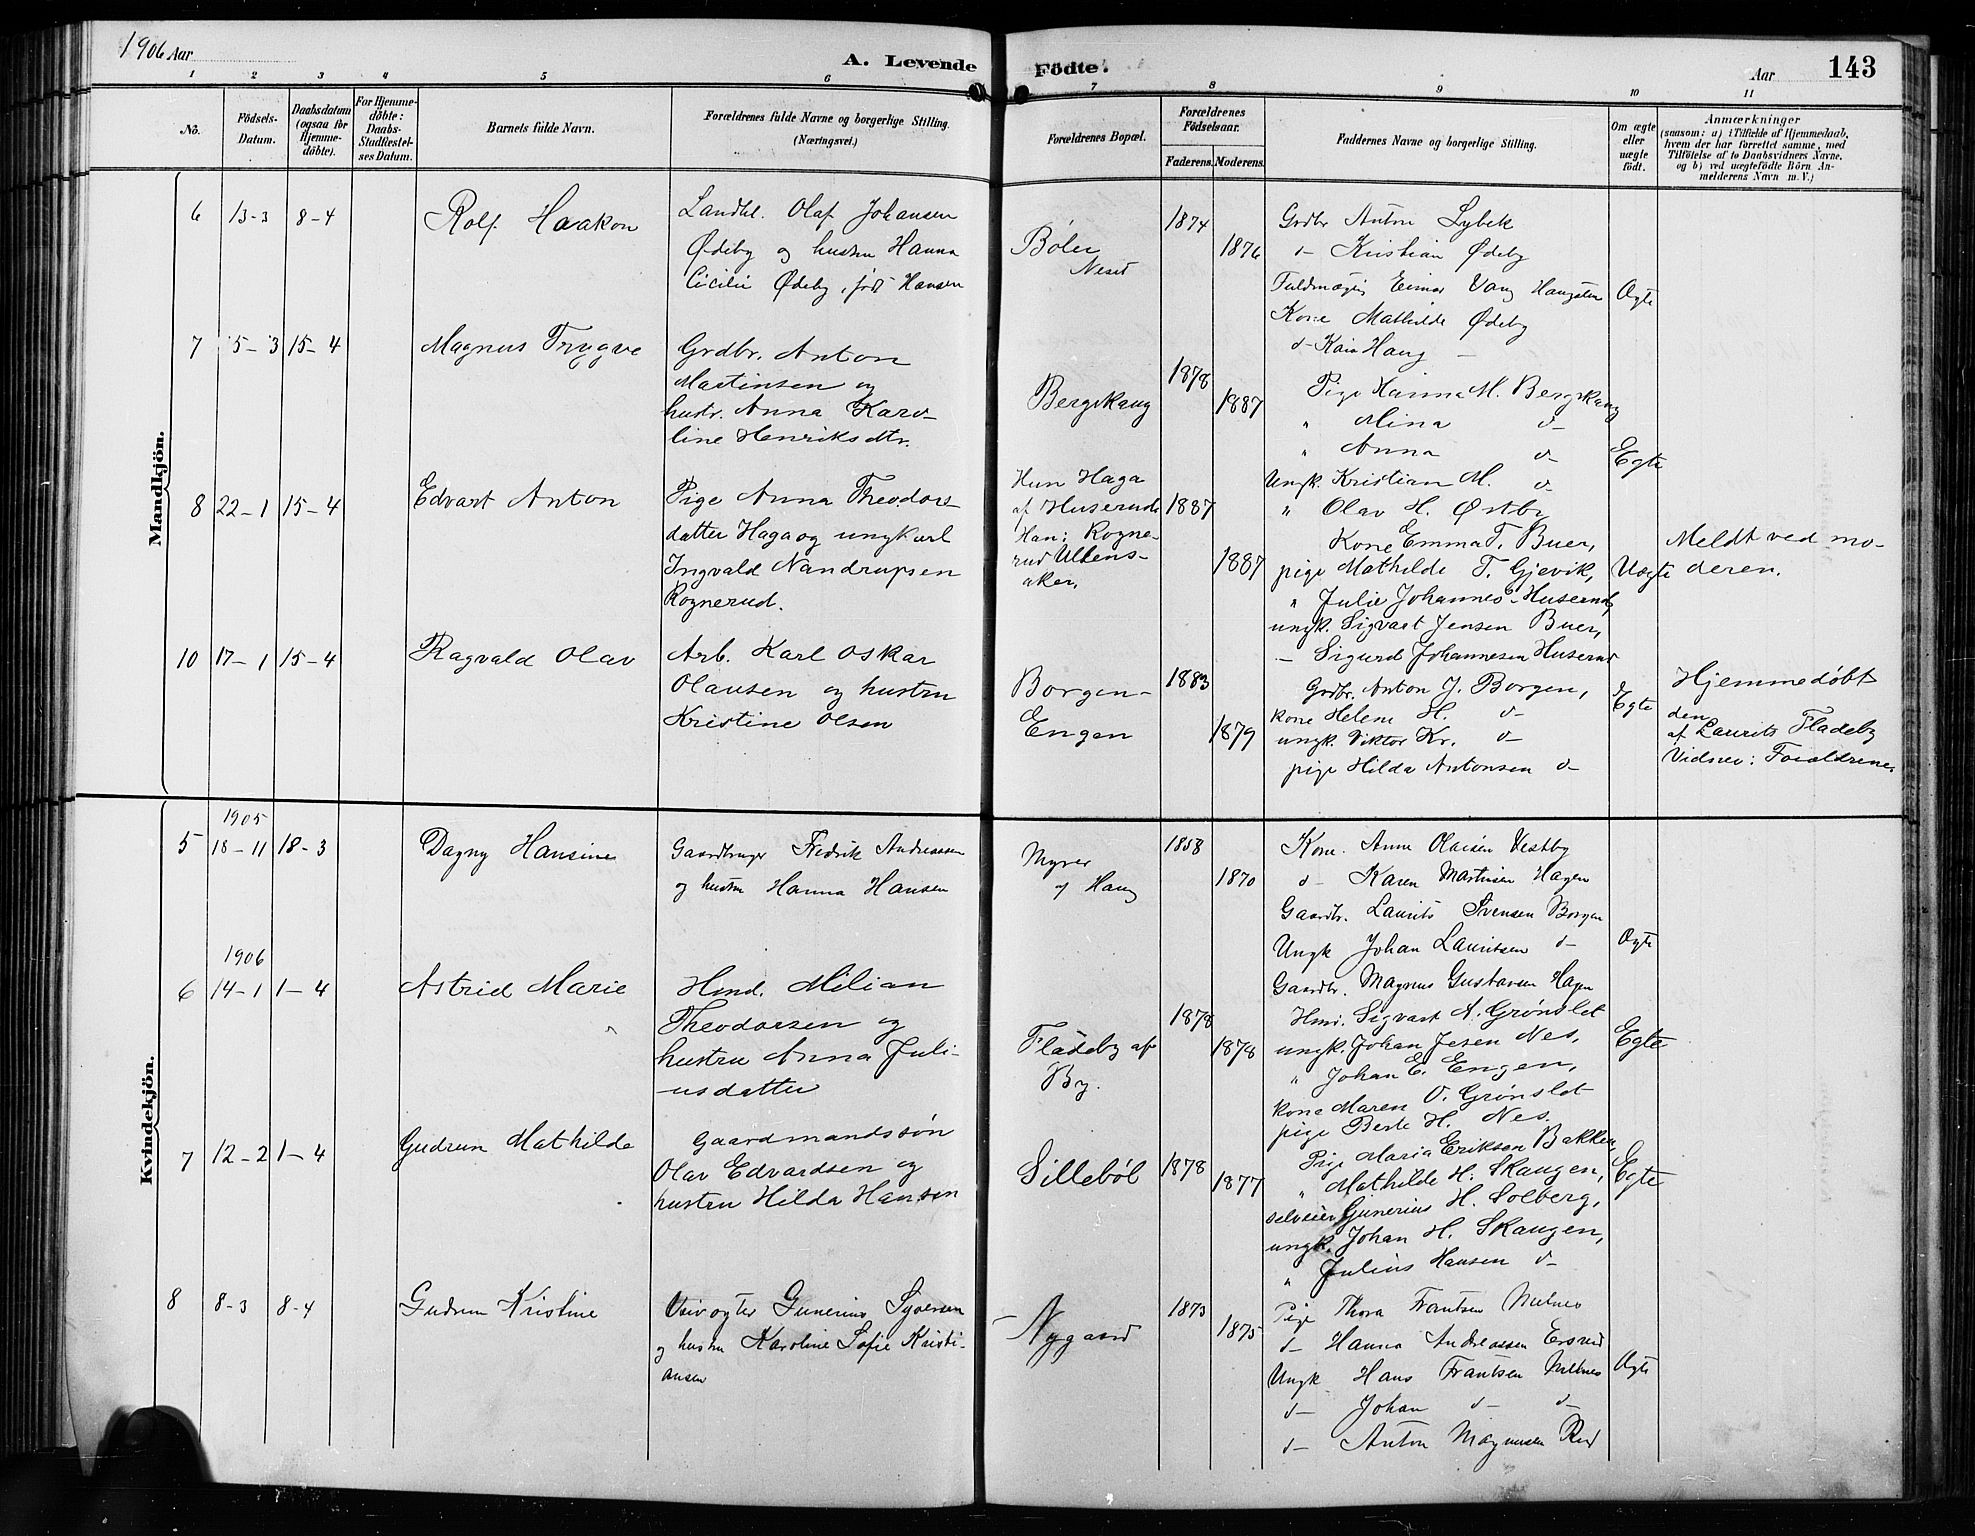 1906 Aar
A. Levende Födte.
Aar
143
1 2 3 4 5 6 7 8 9 10 11
No.
Födsels-Datum.
Daabsdatum (ogsaa for Hjemme-døbte).
For Hjemme-døbte: Daabs-Stadfæstel-ses Datum.
Barnets fulde Navn.
Forældrenes fulde Navne og borgerlige Stilling. (Næringsvei.)
Forældrenes Bopæl.
Forældrenes Födselsaar.
Faderens. Moderens.
Faddernes Navne og borgerlige Stilling.
Om ægte eller uægte født.
Anmærkninger
(saasom: a) i Tilfælde af Hjemmedaab,
hvem der har forrettet samme, med
Tilföielse af to Daabsvidners Navne,
og b) ved uægtefödte Börn An-
melderens Navn m. V.)
Mandkjön.
6 13-3 8-4 Rolf Haakon
Landhl. Olaf Johansen
Ødeby og hustru Hanna
Cicilie Ødeby, født Hansen
Bøler
Neset
1874
1876
Grdbr Anton Lybek
d- Kristian Ødeby
Fuldmægtig Einar Vang Haugsten
Kone Mathilde Ødeby
d- Kaia Haug -
Ægte
7 15-3 15-4 Magnus Trygve
Grdbr. Anton
Martinsen og
hustr. Anna Karo-
line Henriksdtr.
Bergskaug
1878
1887
Pige Hanna M. Bergskaug
" Mina d-
" Anna d-
Ungk. Kristian M. d-
" Olav H. Østby
Egte
8 22-1 15-4 Edvart Anton
Pige Anna Theodors-
datter Haga og ungkarl
Ingvald Nandrupsen
Rognerud.
Hun Haga
af Huserud
Han: Rogne-
rud Ullens-
aker.
1887
1887
Kone Emma T. Buer,
pige Mathilde T. Gjevik,
" Julie Johannes- Huserud,
ungk. Sigvart Jensen Buer,
- Sigurd Johannesen Huserud
Uægte
Meldt ved mo-
deren.
10 17-1 15-4 Ragvald Olav
Arb. Karl Oskar
Olausen og hustru
Kristine Olsen
Borgen-
Engen
1883
1879
Grdbr. Anton J. Borgen,
kone Helene H. d-
ungk. Viktor Kr. d-
pige Hilda Antonsen d-
Egte
Hjemmedøbt
den
af Laurits Fladeby
Vidner: Forældrene.
Kvindekjön.
1905
5 18-11 18-3 Dagny Hansine
Gaardbruger Fredrik Andreassen
og hustru Hanna Hansen
Myrer
af Haug
1858
1870
Kone. Anne Olaisen Vestby
d- Karen Martinsen Hagen
Gaardbr. Laurits Svensen Borgen
Ungk Johan Lauritsen d-
Gaardbr. Magnus Gustavsen Hagen
Ægte
1906
6 14-1 1-4 Astrid Marie
Hmd. Milian
Theodorsen og
hustru Anna Juli-
usdatter
Fladeby af
By.
1878
1878
Hmd. Sigvart A. Grønslet
ungk. Johan Jesen Nes,
" Johan E. Engen,
kone Maren O. Grønslet
pige Berte H. Nes
Egte
7 12-2 1-4 Gudrun Mathilde
Gaardmandssøn
Olav Edvardsen og
hustru Hilda Hansen
Sillebøl
1878
1877
Pige Maria Eriksen Bakken,
" Mathilde H. Skaugen,
selveier Gunerius H. Solberg,
ungk. Johan H. Skaugen,
" Julius Hansen d-
Egte
8 8-3 8-4 Gudrun Kristine
Gunerius Syversen
og hustru Karoline Sofie Kristi-
ansen
Nygaard
1873
1875
Pige Thora Frantsen Melnes
d- Hanna Andreassen
Ungk Hans Frantsen Melnes
d- Johan d- d-
d- Anton Magnusen Rud
Ægte